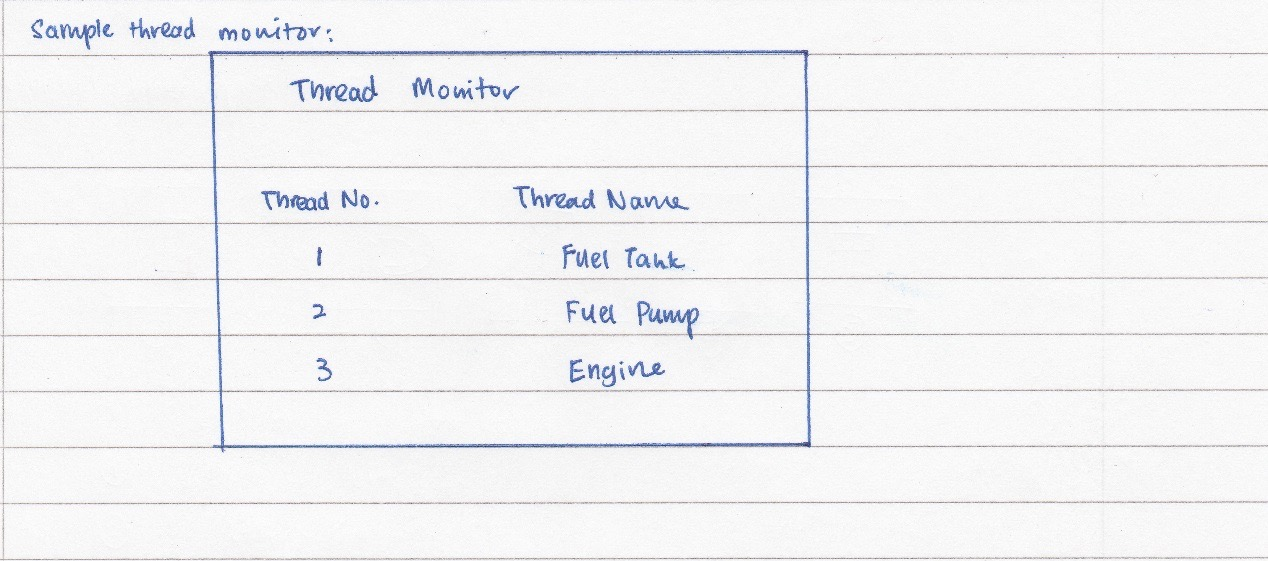 Sample thread monitor:
Thread Monitor
Thread No. Thread Name
1 Fuel Tank
2 Fuel Pump
3 Engine